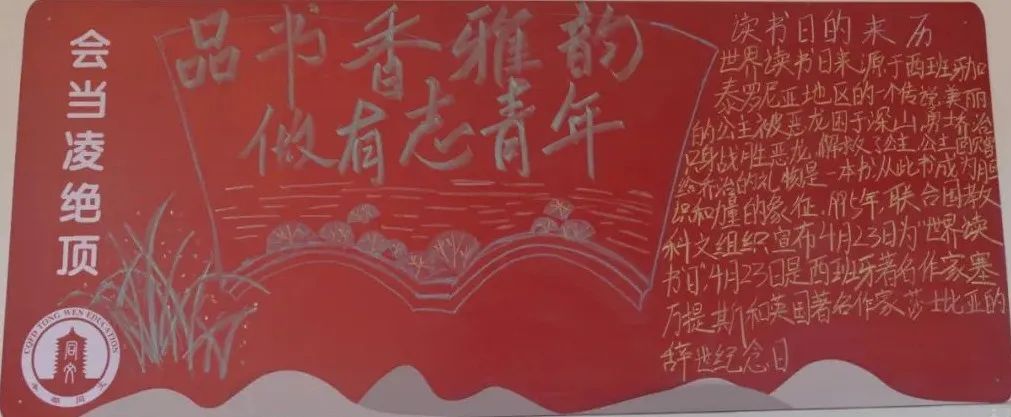 会当凌绝顶
品书香雅韵
做有志青年
读书日的来历
世界读书日来源于西班牙加
泰罗尼亚地区的一个传说美丽
的公主被恶龙困于深山,勇士乔治
只身战胜恶龙,解救了公主,公主回赠
给乔治的礼物是一本书.从此书成为胆
识和力量的象征.1995年,联合国教
科文组织宣布4月23日为"世界读
书日",4月23日是西班牙著名作家塞
万提斯和英国著名作家莎士比亚的
辞世纪念日
CQFD TONG WEN EDUCATION
同文